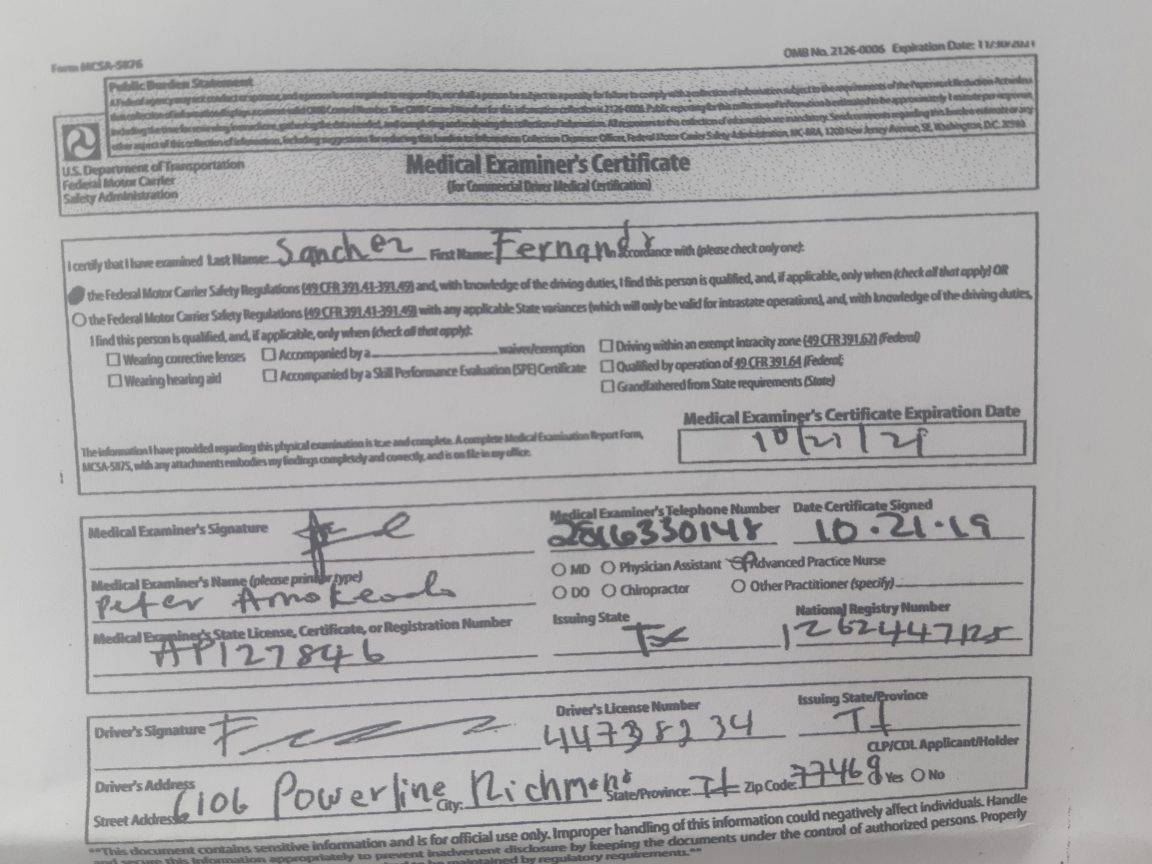 Form MCSA-5876
OMB No. 2126-0006 Expiration Date: 11/30/2021
Public Burden Statement
A Federal agency may not conduct or sponsor, and a person is not required to respond to, nor shall a person be subject to a penalty for failure to comply with a collection of information subject to the requirements of the Paperwork Reduction Act unless
U.S. Department of Transportation
Federal Motor Carrier
Safety Administration
Medical Examiner's Certificate
(for Commercial Driver Medical Certification)
I certify that I have examined Last Name: Sanchez First Name: Fernando in accordance with (please check only one):
the Federal Motor Carrier Safety Regulations (49 CFR 391.41-391.49) and, with knowledge of the driving duties, I find this person is qualified, and, if applicable, only when (check all that apply) OR
the Federal Motor Carrier Safety Regulations (49 CFR 391.41-391.49) with any applicable State variances (which will only be valid for intrastate operations), and, with knowledge of the driving duties,
I find this person is qualified, and, if applicable, only when (check all that apply):
Wearing corrective lenses Accompanied by a waiver/exemption Driving within an exempt intracity zone (49 CFR 391.62) (Federal)
Wearing hearing aid Accompanied by a Skill Performance Evaluation (SPE) Certificate Qualified by operation of 49 CFR 391.64 (Federal)
Grandfathered from State requirements (State)
Medical Examiner's Certificate Expiration Date
10/21/21
The information I have provided regarding this physical examination is true and complete. A complete Medical Examination Report Form,
MCSA-5875, with any attachments embodies my findings completely and correctly, and is on file in my office.
Medical Examiner's Signature
Medical Examiner's Telephone Number
2816330148
Date Certificate Signed
10.21.19
MD Physician Assistant Advanced Practice Nurse
DO Chiropractor Other Practitioner (specify)
Medical Examiner's Name (please print or type)
Peter
Medical Examiner's State License, Certificate, or Registration Number
AP127846
Issuing State
Tx
National Registry Number
1262447125
Driver's Signature
Driver's License Number
44738234
Issuing State/Province
TX
CLP/CDL Applicant/Holder
Yes No
Driver's Address
Street Address: 6106 Powerline City: Richmond State/Province: TX Zip Code: 77469
**This document contains sensitive information and is for official use only. Improper handling of this information could negatively affect individuals. Handle
and secure this information appropriately to prevent inadvertent disclosure by keeping the documents under the control of authorized persons. Properly